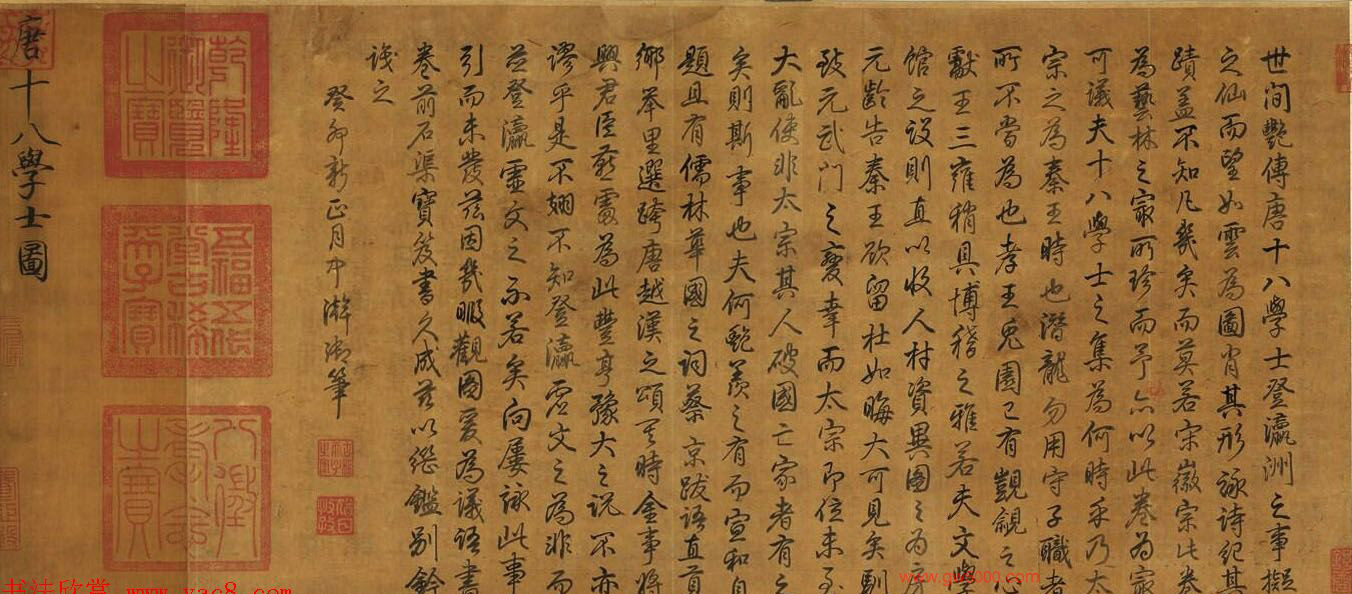 世间艷傳唐十八學士登瀛洲之事擬
之仙而望如雲為圖肖其形詠詩紀其
蹟盖不知凡幾矣而莫若宋徽宗此卷
為藝林之最所珍而予亦以此卷為最
可議夫十八學士之集為何時乎乃太
宗之為秦王時也潛龍勿用守子職者
所不當為也孝王兎園已有覬覦之心
獻王三雍稍具博稽之雅若夫文學
館之設則直以收人材資異圖之為房
元齡告秦王欲留杜如晦大可見矣馴
致元武門之變幸而太宗即位未至
大亂使非太宗其人破國亡家者有之
矣則斯事也夫何艷羨之有而宣和自
題且有儒林華國之詞蔡京跋語直首
鄉舉里選跨唐越漢之頌其時金事將
興君臣蔽蒙為此豐亨豫大之說不亦
謬乎是不翅不知登瀛虛文之為非而
並登瀛虛文之不若矣向屡詠此事
引而未發茲因幾暇觀圖爰為議語書
卷前石渠寶笈書久成茲以繼鑑别鈐
識之
癸卯新正月中澣御筆
乾隆御覽之寶
五福五代堂古稀天子寶
八徵耄念之寶
唐十八學士圖
www.gud000.com
书法欣赏 www.yac8.com